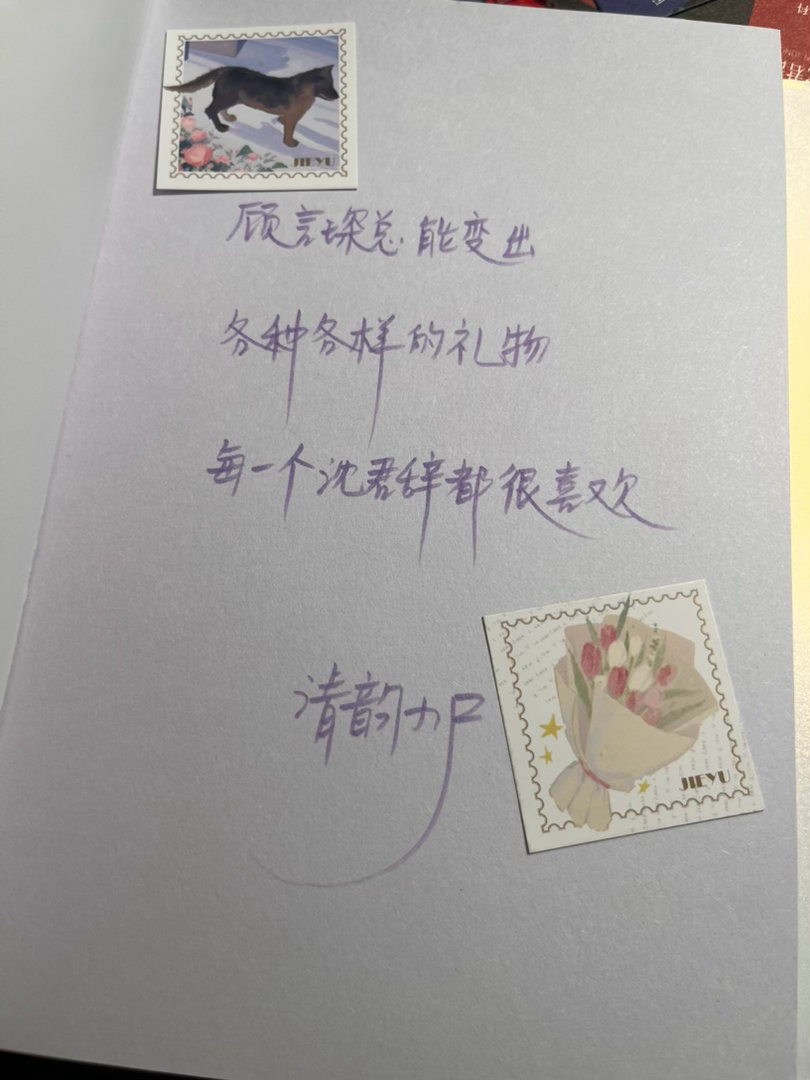 JIEYU
顾言琛总能变出
各种各样的礼物
每一个沈君辞都很喜欢
清韵小尸
JIEYU